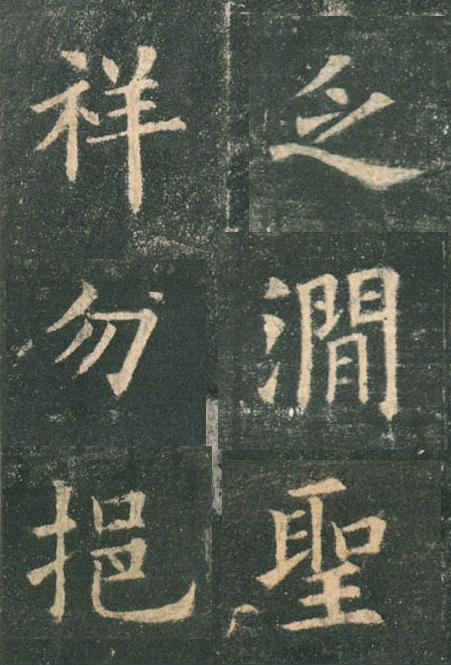 乏澗聖
祥勿挹